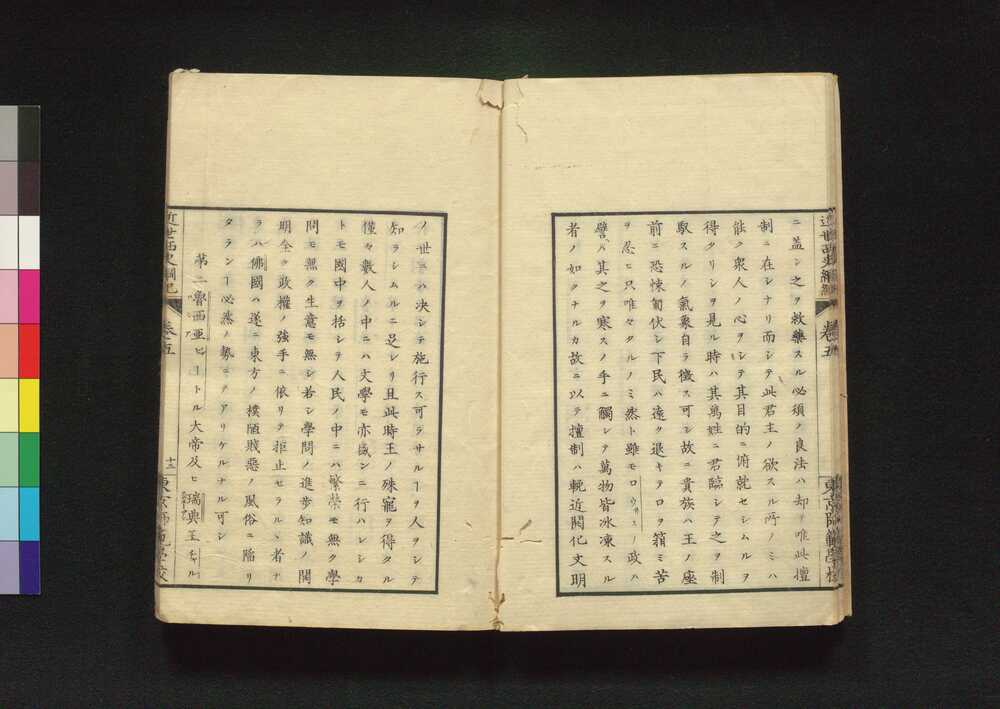 ニ蓋シ之ヲ救藥スル必須ノ良法ハ却テ唯此擅
制ニ在シナリ而シテ此君主ノ欲スル所ノミハ
能ク衆人ノ心ヲシテ其目的ニ俯就セシムルヲ
得タリシヲ見ル時ハ其萬姓ニ君臨シテ之ヲ制
馭スルノ氣象自ラ徴ス可シ故ニ貴族ハ王ノ座
前ニ恐悚匍伏シ下民ハ遠ク退キテ口ヲ箝ミ苦
ヲ忍ヒ只唯々タルノミ然ト雖モロウ井スノ政ハ
譬ハ其之ヲ寒スノ手ニ觸レテ萬物皆冰凍スル
者ノ如クナルカ故ニ以テ擅制ハ輓近開化文明
近世西史綱紀
卷五
東京師範學校
ノ世ニハ決シテ施行ス可ラサルヿヲ人ヲシテ
知ラシムルニ足レリ且此時王ノ殊寵ヲ得タル
僅々數人ノ中ニハ文學モ亦盛ンニ行ハレシカ
トモ國中ヲ括シテ人民ノ中ニハ繁榮モ無ク學
問モ無ク生意モ無シ若シ學問ノ進步知識ノ開
明全ク政權ノ強手ニ依リテ拒止セラルヽ者ナ
ラハ佛國ハ遂ニ東方ノ樸陋賤惡ノ風俗ニ陷リ
タランヿ必然ノ勢ニテアリケルナル可シ
第二魯西亞ピートル大帝及ヒ瑞典王チャル
近世西史綱紀
卷五
十二
東京師範學校